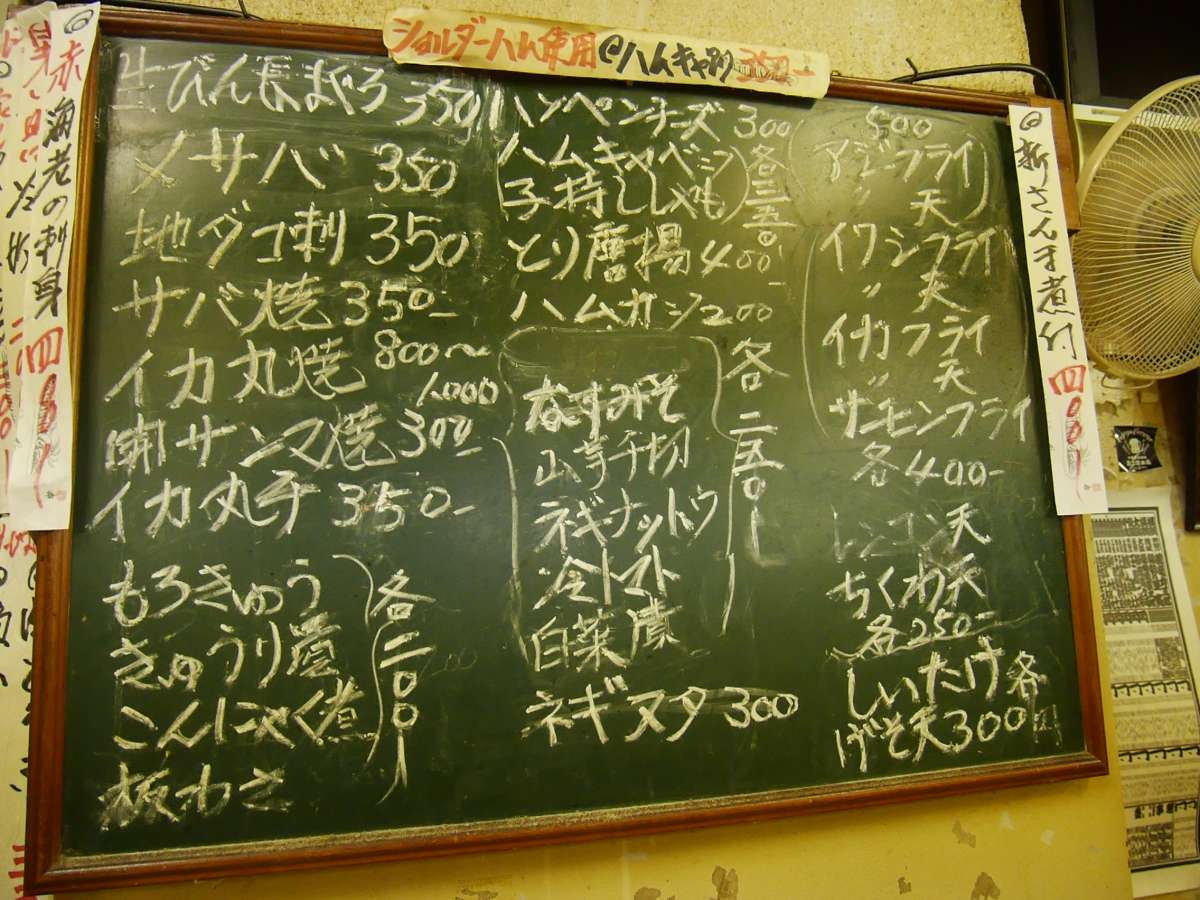 ショルダーハム使用 ハムキャベツ 350-
赤海老の刺身 四〇〇-
生びん長まぐろ 350
メサバ 350
地ダコ刺 350
サバ焼 350-
イカ丸焼 800〜
1,000
開サンマ焼 300-
イカ丸干 350-
もろきゅう
きゅうり漬
こんにゃく煮
板わさ
各二〇〇-
ハンペンチーズ 300
ハムキャベツ
子持ししゃも
各三五〇-
とり唐揚 400-
ハムカツ 200
なすみそ
山芋千切
ネギナットウ
冷トマト
白菜漬
各二五〇-
ネギヌタ 300
500
アジフライ
〃 天
イワシフライ
〃 天
イカフライ
〃 天
サーモンフライ
各400-
レンコン天
ちくわ天
各250-
しいたけ 各
げそ天 300円
新さんま煮付 四〇〇-